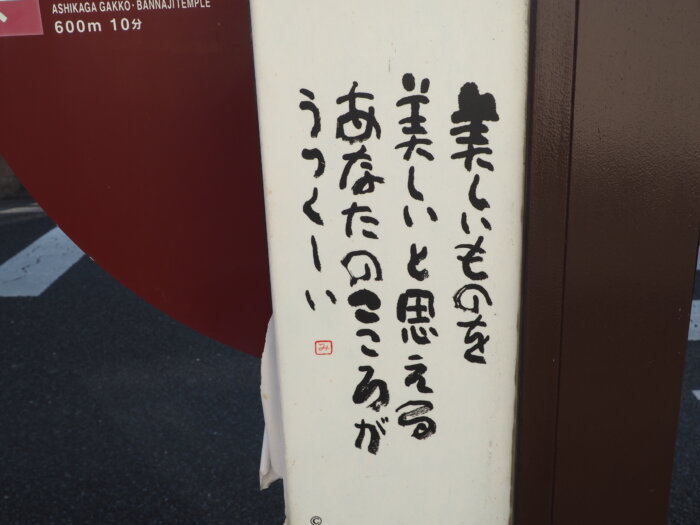 ASHIKAGA GAKKO・BANNAJI TEMPLE
600m 10分
美しいものを
美しいと思える
あなたのこころが
うつくしい
み
©